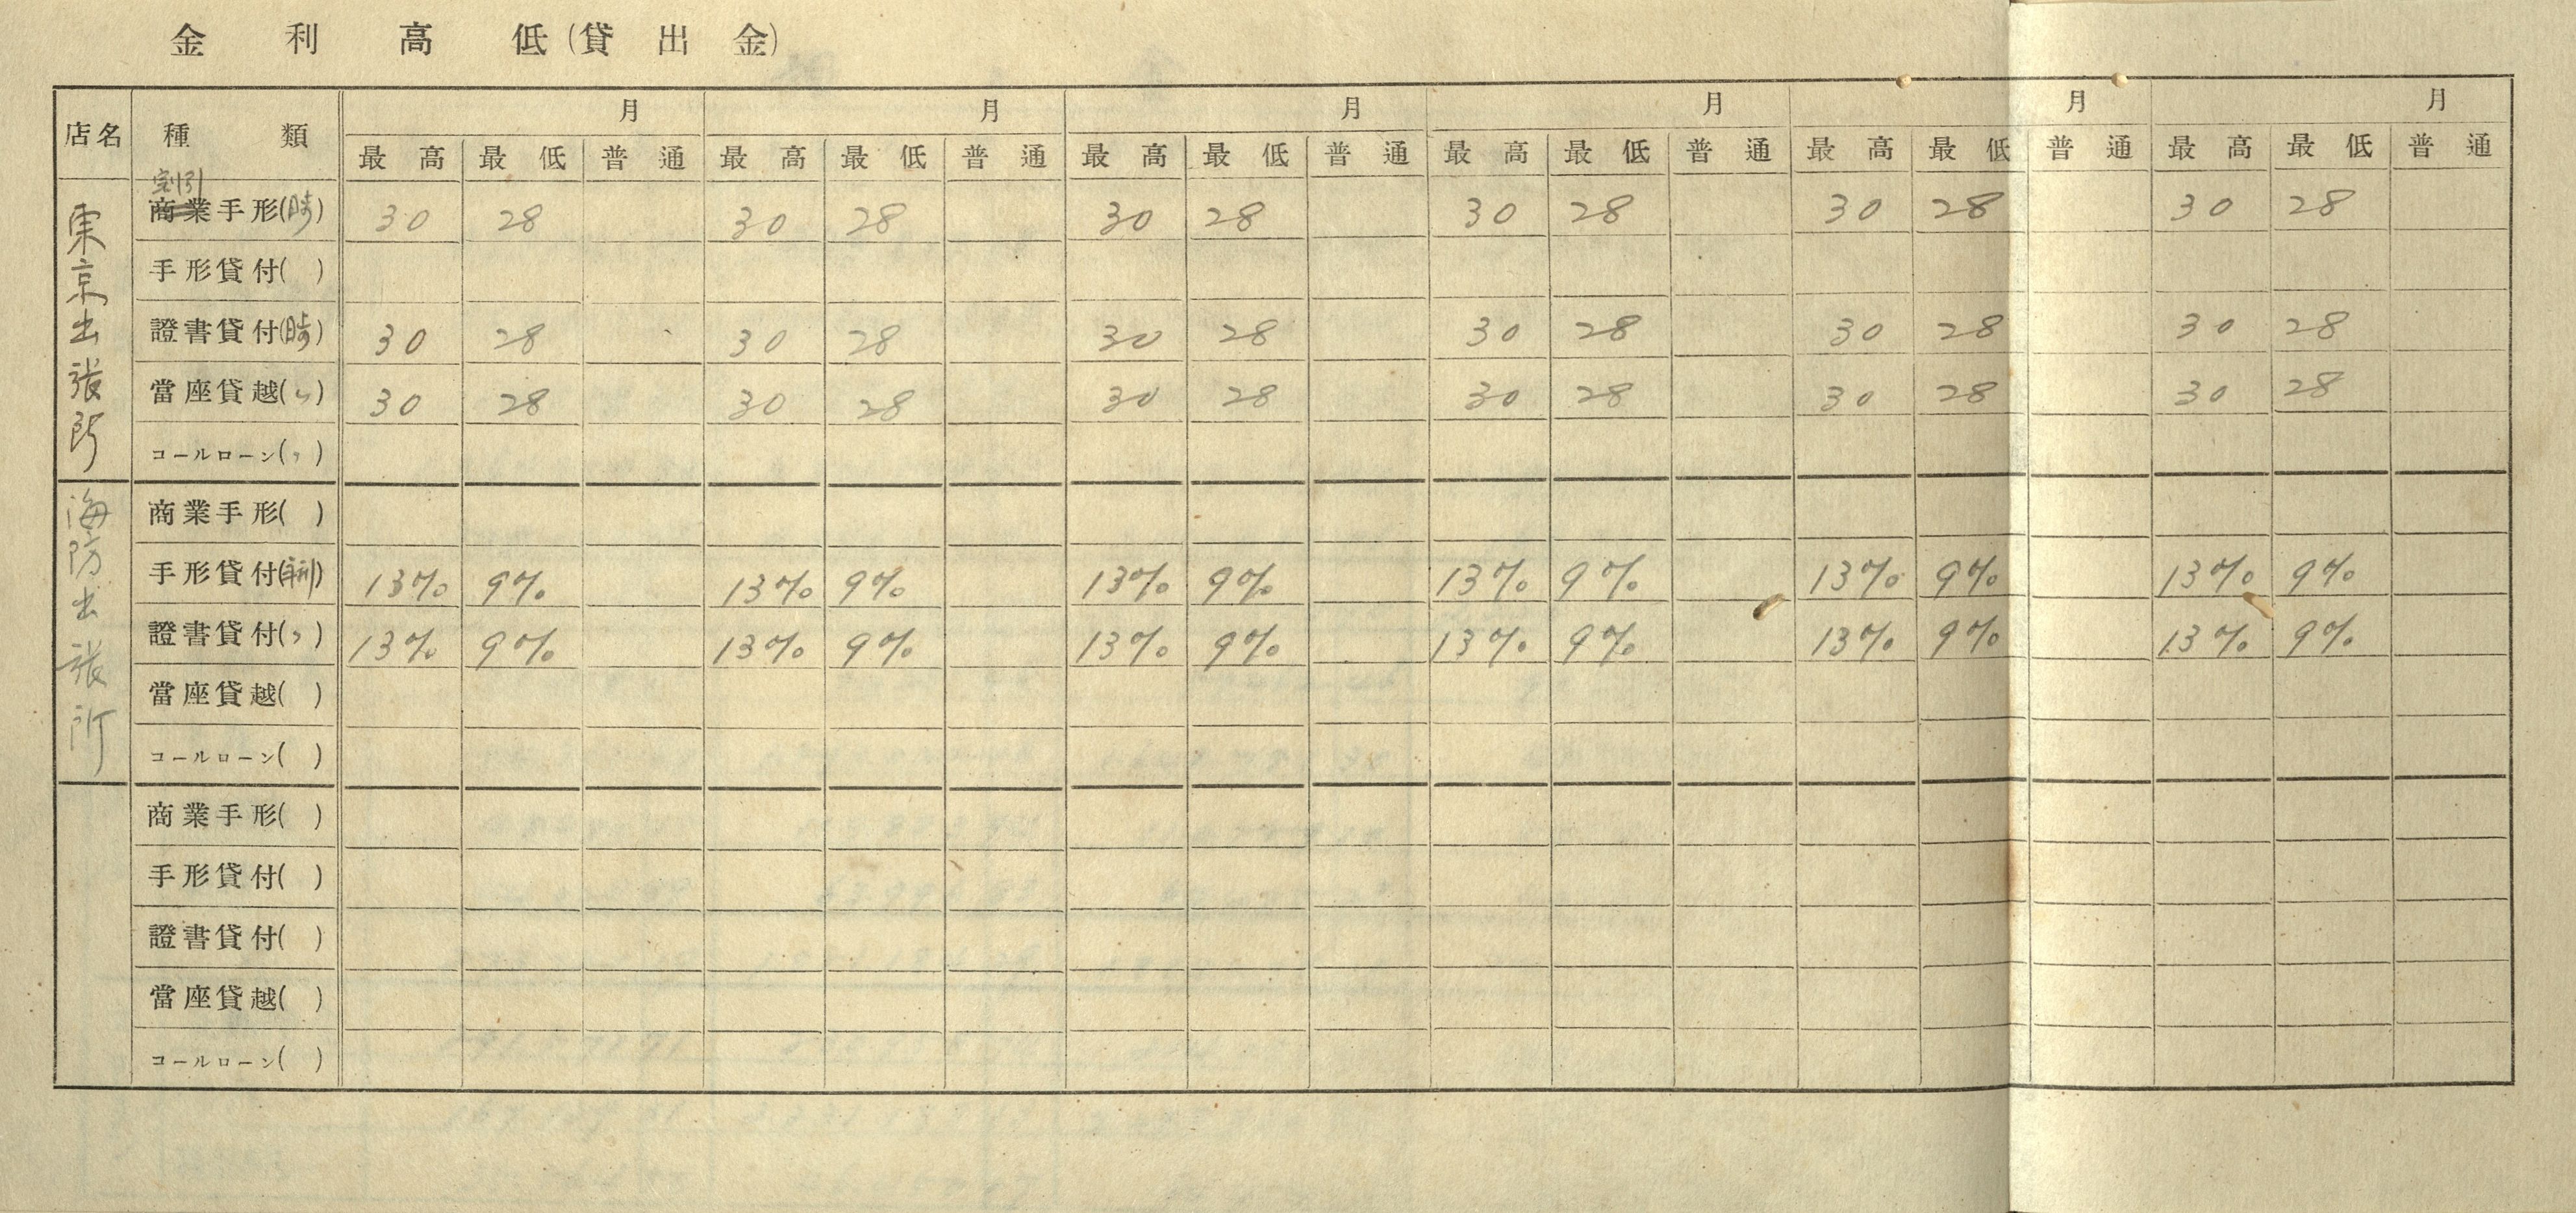 金利高低(貸出金)
店名 種類 月 月 月 月 月 月
最高 最低 普通 最高 最低 普通 最高 最低 普通 最高 最低 普通 最高 最低 普通 最高 最低 普通
東京出張所
割引
商業手形( ) 30 28 30 28 30 28 30 28 30 28 30 28
手形貸付( )
證書貸付( ) 30 28 30 28 30 28 30 28 30 28 30 28
當座貸越(〃) 30 28 30 28 30 28 30 28 30 28 30 28
コールローン(〃)
海防出張所
商業手形( )
手形貸付(年利) 13% 9% 13% 9% 13% 9% 13% 9% 13% 9% 13% 9%
證書貸付(〃) 13% 9% 13% 9% 13% 9% 13% 9% 13% 9% 13% 9%
當座貸越( )
コールローン( )
商業手形( )
手形貸付( )
證書貸付( )
當座貸越( )
コールローン( )